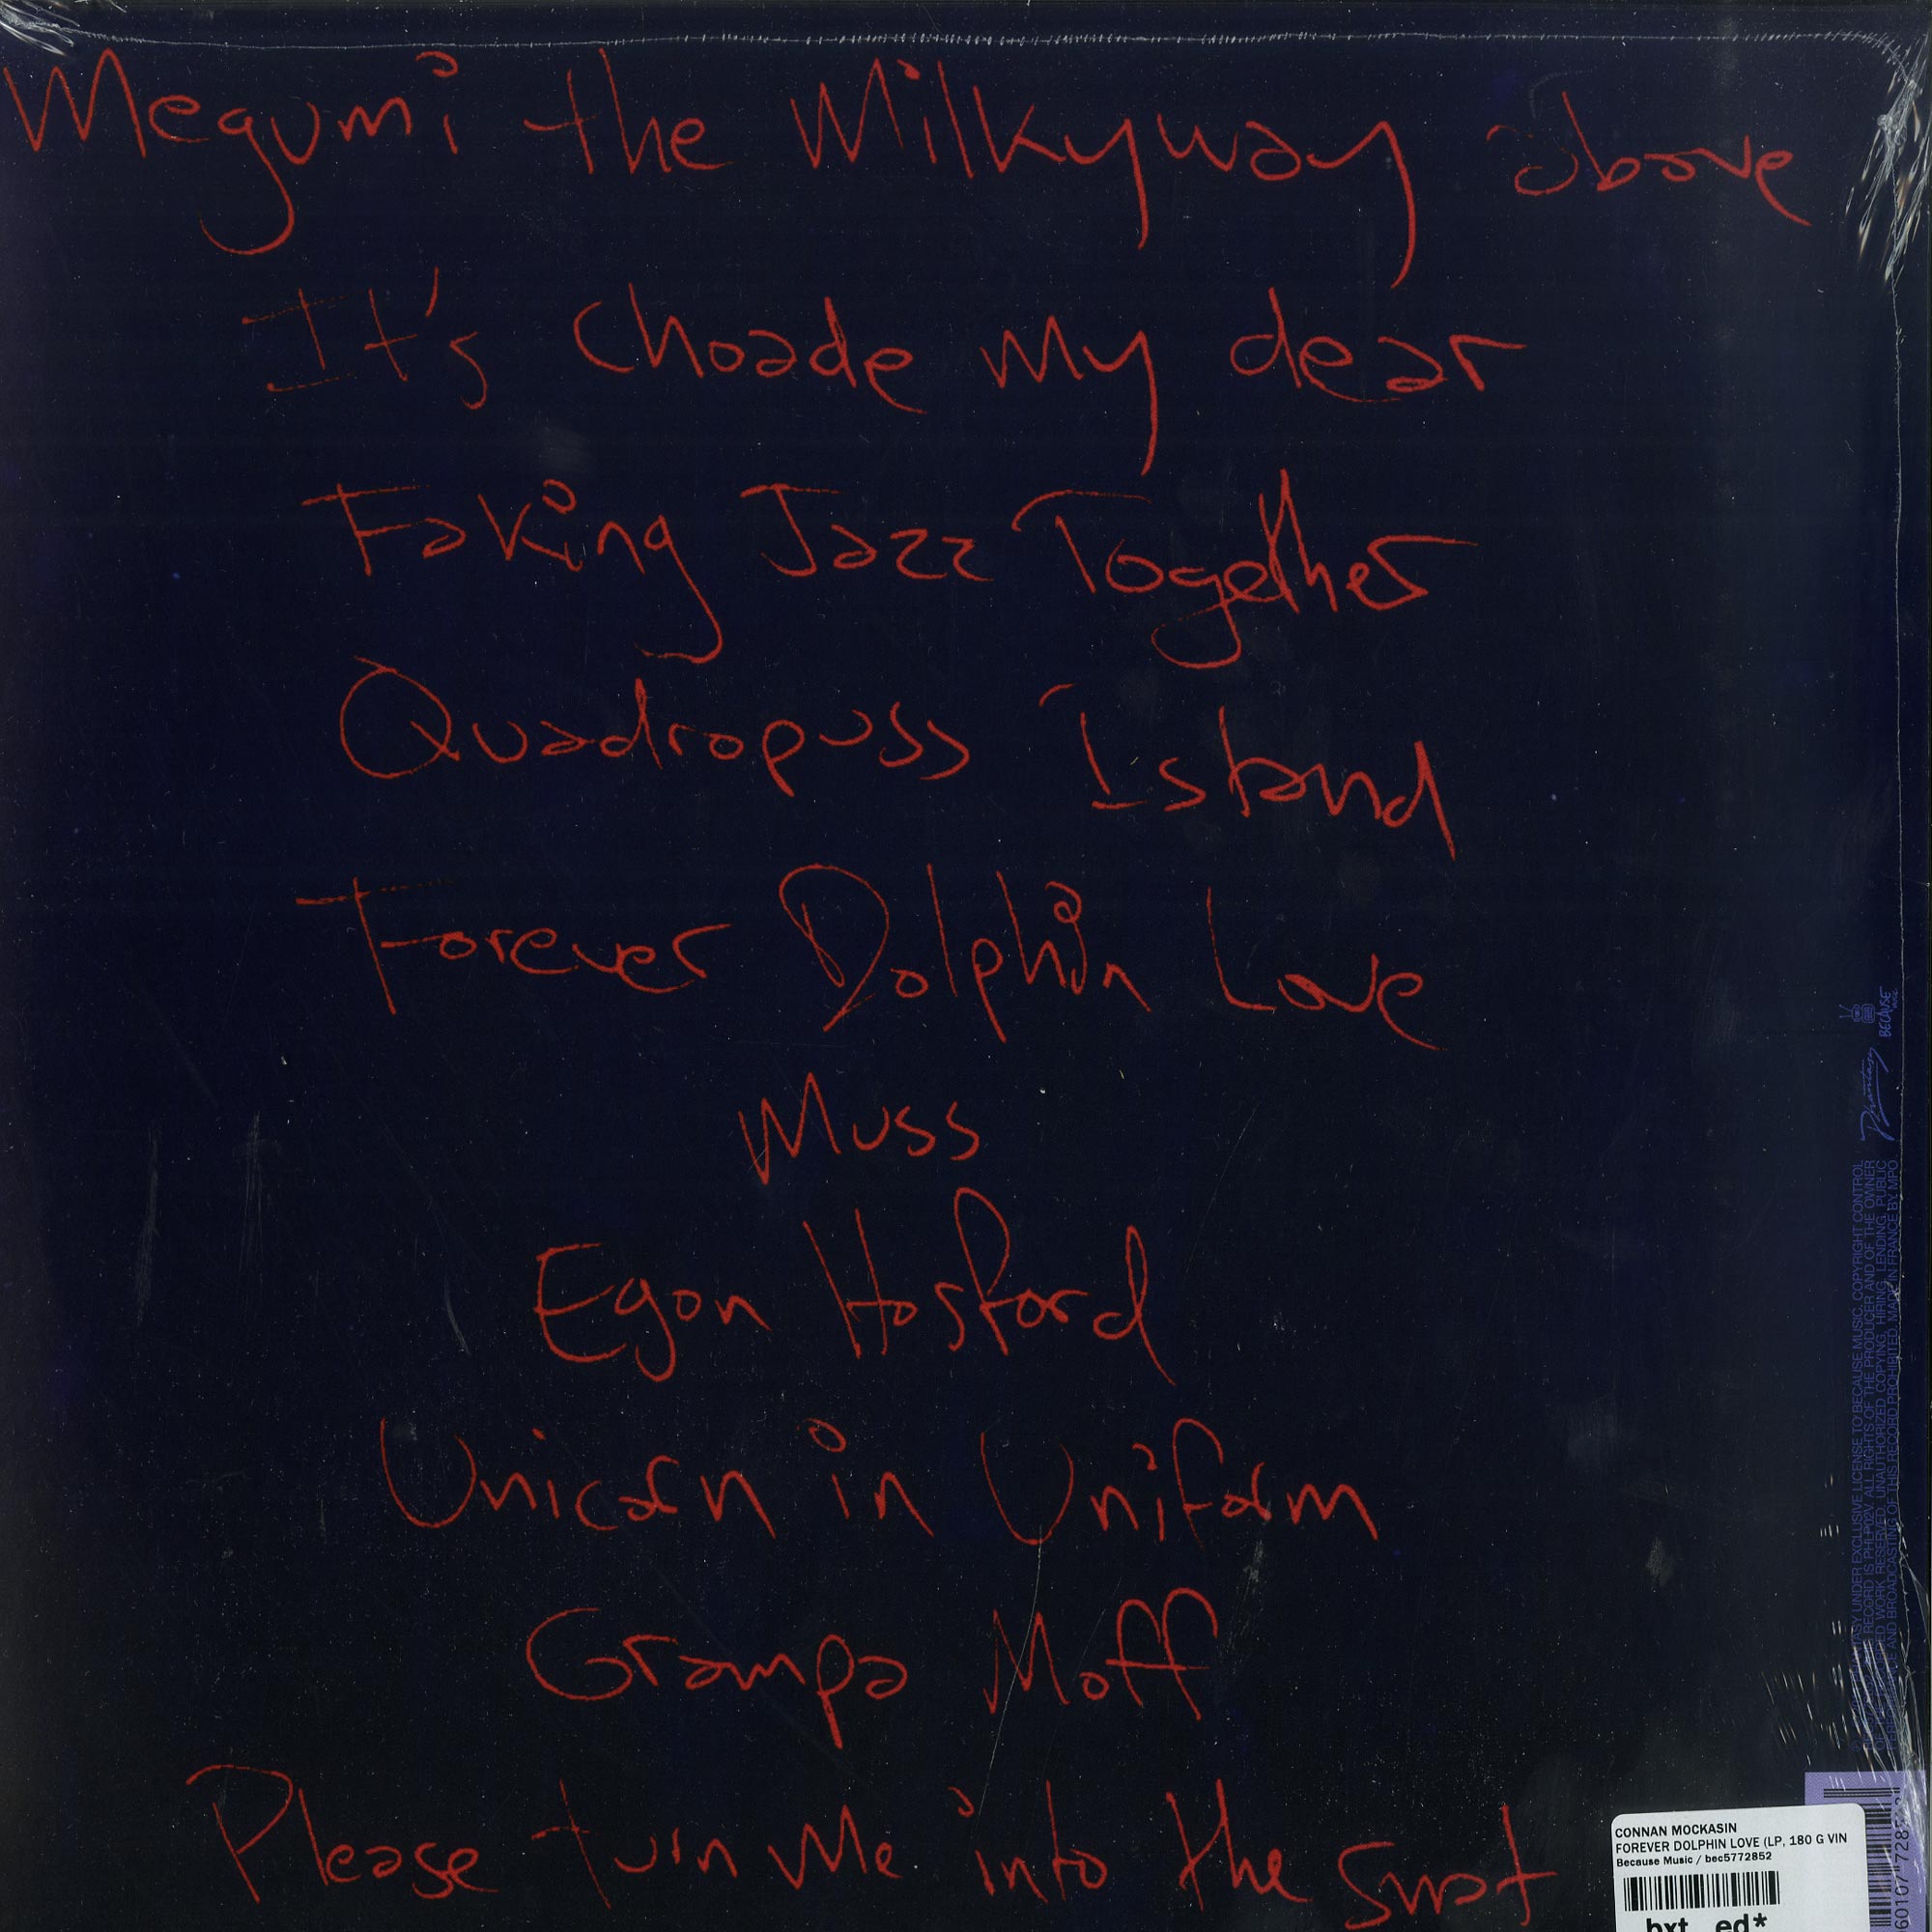 Megumi the Milkyway above
It's Choade my dear
Faking Jazz Together
Quadropuss Island
Forever Dolphin Love
Muss
Egon Hosford
Unicorn in Uniform
Grampa Moff
Please turn Me into the Snat
BECAUSE
Phantasy
UNDER EXCLUSIVE LICENSE TO BECAUSE MUSIC, COPYRIGHT CONTROL
RECORD IS PHLP02V. ALL RIGHTS OF THE PRODUCER AND OF THE OWNER
WORK RESERVED. UNAUTHORIZED COPYING, HIRING, LENDING, PUBLIC
AND BROADCASTING OF THIS RECORD PROHIBITED. MADE IN FRANCE BY MPO
CONNAN MOCKASIN
FOREVER DOLPHIN LOVE (LP, 180 G VIN
Because Music / bec5772852
bxt ed*